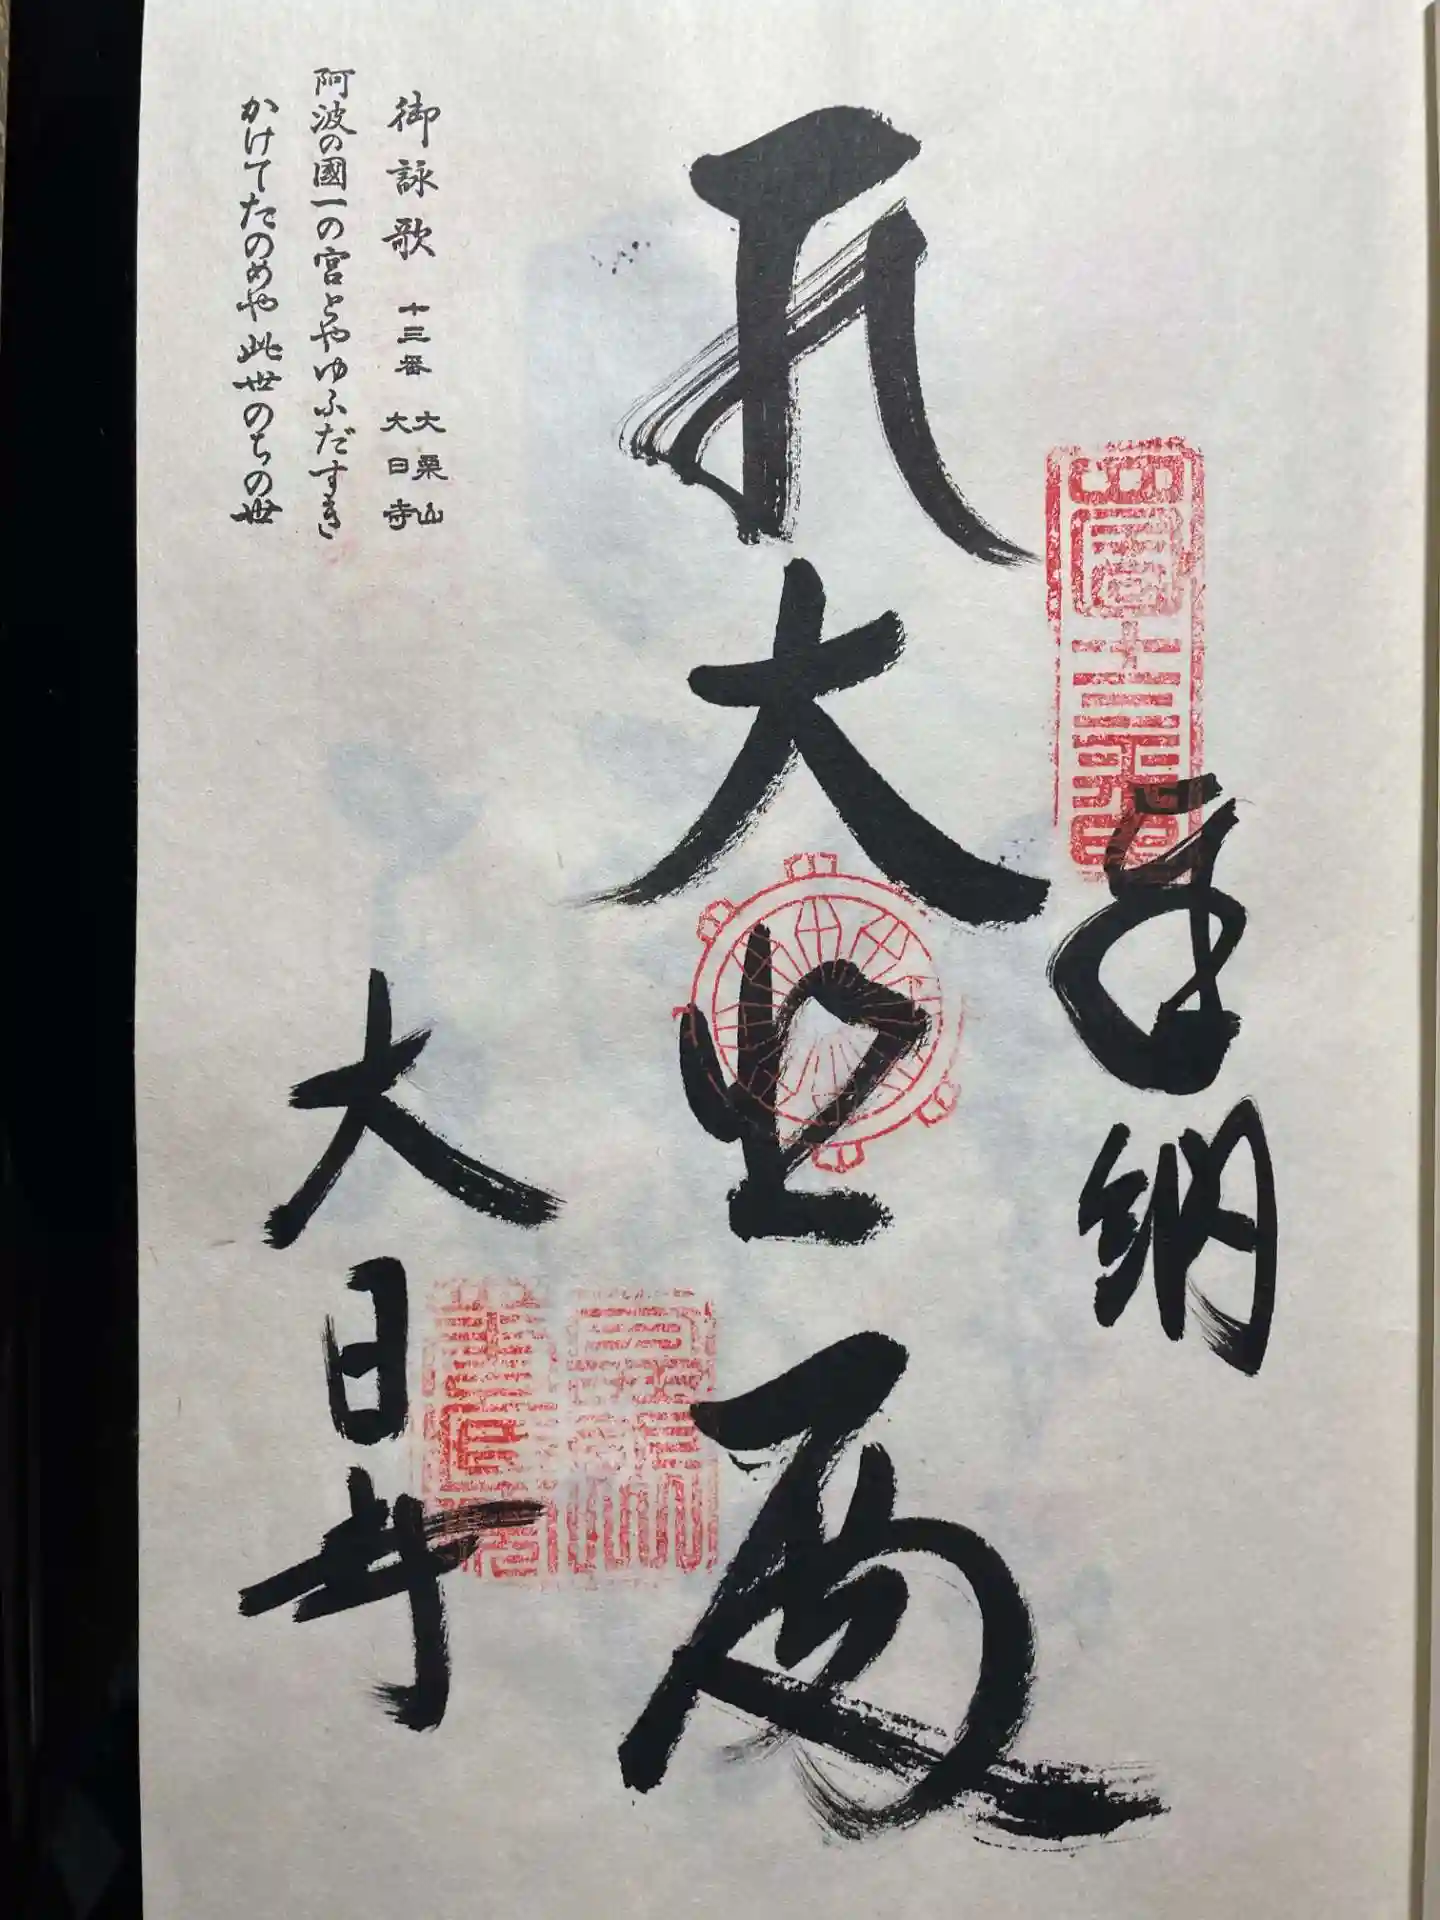 四国十三番
奉納
大悲
大日寺
御詠歌 十三番 大栗山 大日寺
阿波の國一の宮とやゆふだすき
かけてたのめや此世のちの世